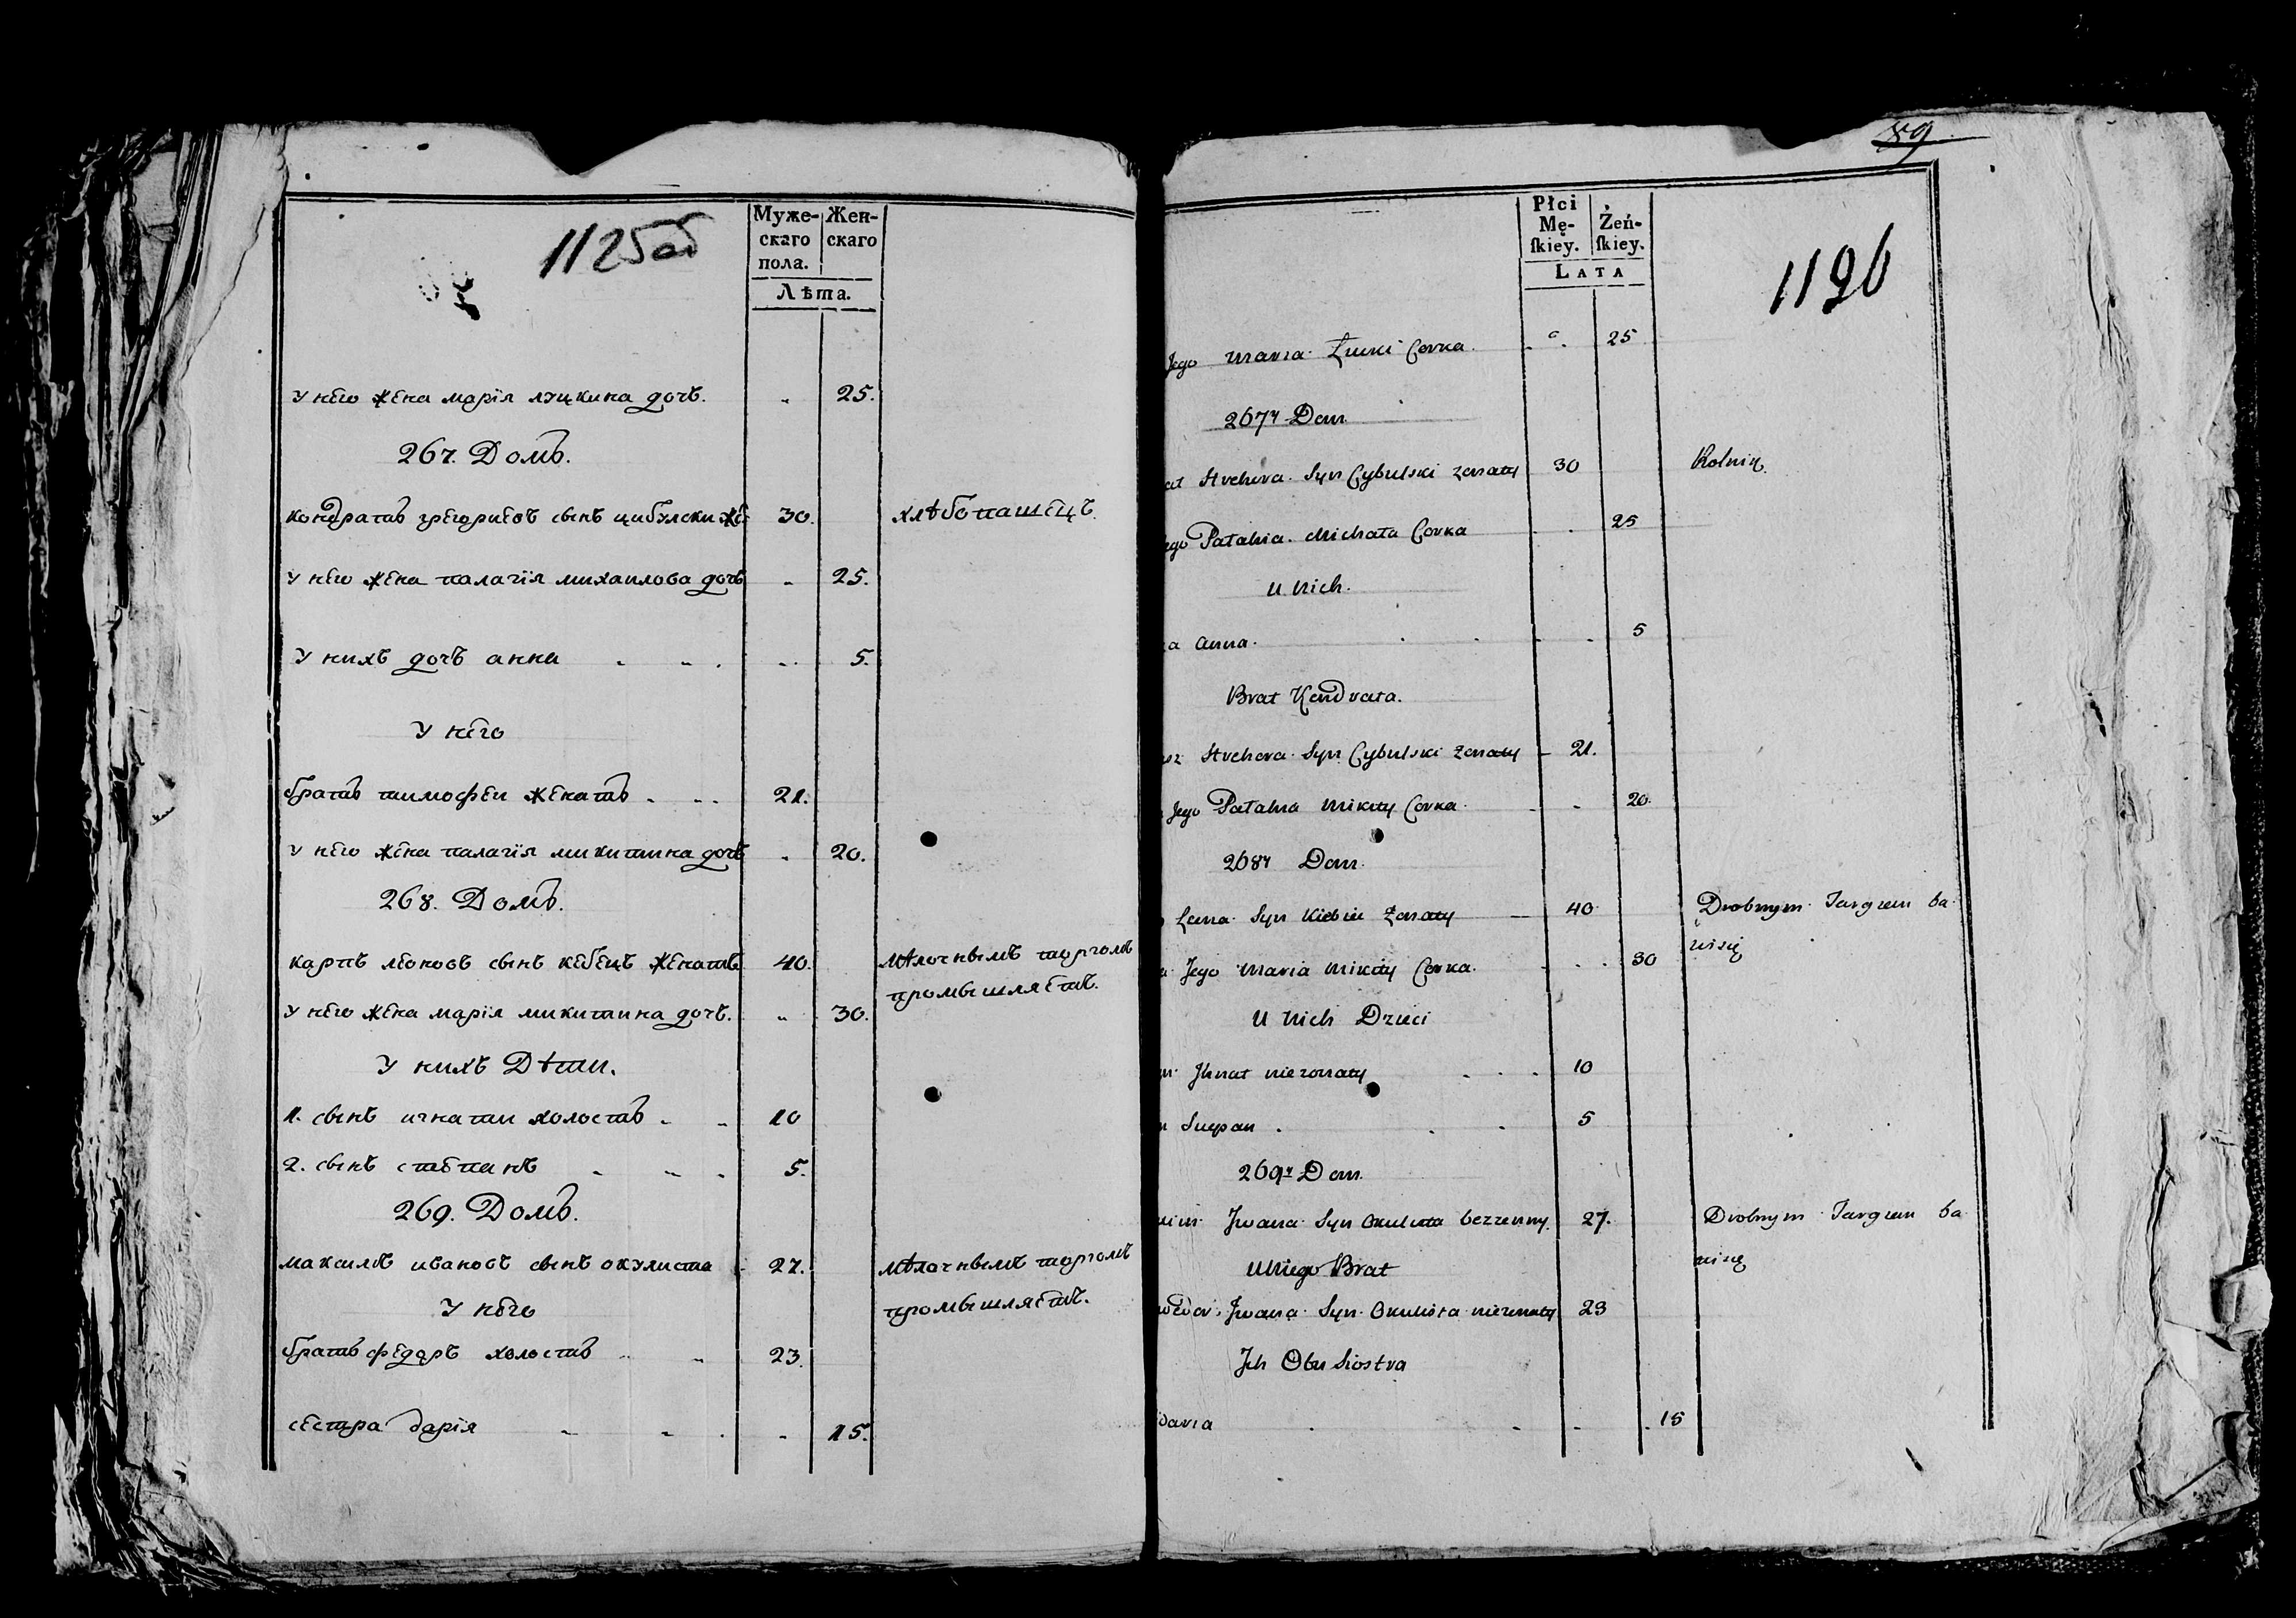 1125об
Муже-
скаго
пола.
Жен-
скаго
Лѣта.
У него жена марїя луцкина дочъ. „ 25.
267. Домъ.
кондратъ григориевъ сынъ цибулски же 30. хлѣбопашецъ.
У него жена палагїя михаилова дочъ „ 25.
У нихъ дочъ анна „ 5.
У него
братъ тимофеи женатъ 21.
У него жена палагїя микитина дочъ „ 20.
268. Домъ.
карпъ леоновъ сынъ кебецъ женатъ 40. мѣлочнымъ торгомъ
промышляетъ.
У него жена марїя микитина дочъ. „ 30.
У нихъ Дѣти.
1. сынъ игнатии холостъ 10
2. сынъ степанъ 5.
269. Домъ.
максимъ ивановъ сынъ окулиста 27. мѣлочнымъ торгомъ
промышляетъ.
У него
братъ федоръ холостъ 23.
сестра дарїя „ 15.
89
Płci
Mę-
ſkiey.
Żeń-
ſkiey.
LATA
1126
Jego Maria Łucki Corka. 25
267y Dom.
at Hrehora Syn Cybulski zonaty 30 Rolnik
ego Pałahia Michała Corka 25
U Nich.
a Anna. 5
Brat Kondrata.
Hrehora Syn Cybulski zonaty 21.
Jego Pałahia Mikity Corka 20.
268y Dom.
Leona Syn Kiebiec Zonaty 40 Drobnym Targiem ba
wi się
Jego Maria Mikity Corka. 30
U Nich Dzieci
Ihnat niezonaty 10
Sciepan 5
269y Dom.
Jwana Syn Okulista bezzenny. 27. Drobnym Targiem ba
wi się
U Niego Brat
Jwana Syn Okulista niezonaty 23
Jch Obu Siostra
Daria 15